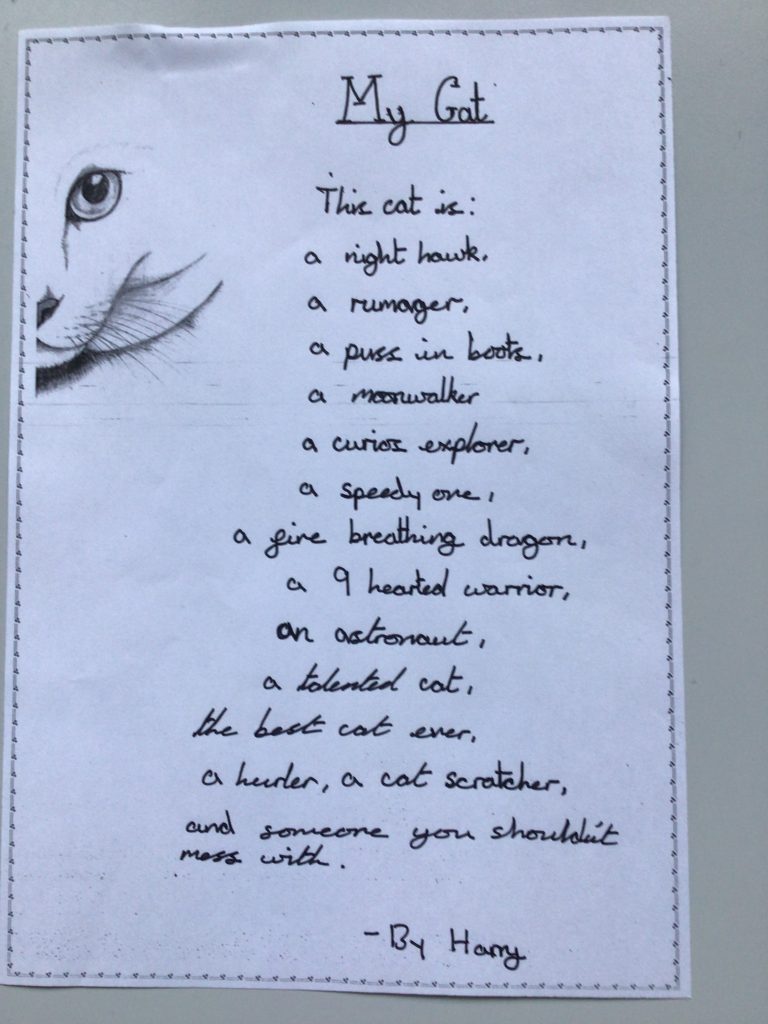 My Cat
This cat is:
a night hawk.
a rumager,
a puss in boots,
a moonwalker
a curios explorer,
a speedy one,
a fire breathing dragon,
a 9 hearted warrior,
an astronaut,
a talented cat,
the best cat ever,
a hurler, a cat scratcher,
and someone you shouldn't
mess with.
- By Harry